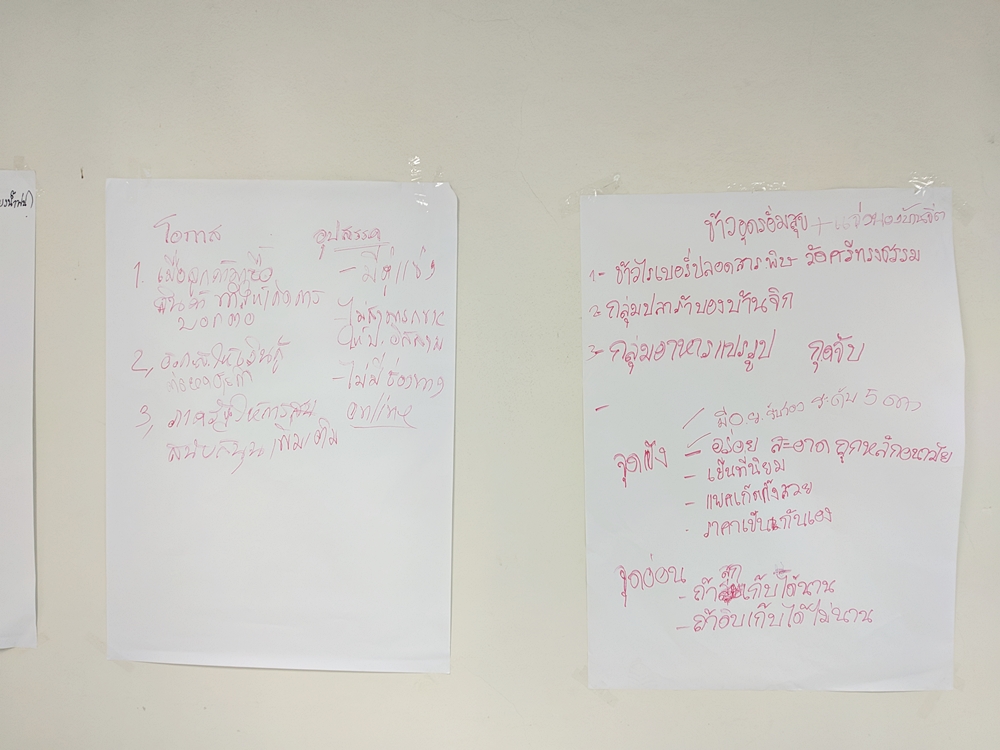 องน้ำพ่น)
โอกาส
1. เมื่อลูกค้าซื้อ
สินค้า ทำให้เกิดการ
บอกต่อ
2, ให้เงินกู้
3, ภาครัฐให้การสนับ
สนับสนุนเพิ่มเติม
อุปสรรค
- มีคู่แข่ง
- ไม่สามารถขาย
ให้ ป. อิสลาม
- ไม่มีช่องทาง
online
ข้าวอุดรอิ่มสุข + แจ่วบองบ้านจิก
1- ข้าวไรเบอรี่ปลอดสารพิษ วัดศรีทรงธรรม
2. กลุ่มปลาร้าบองบ้านจิก
3- กลุ่มอาหารแปรรูป กุดจับ
-
จุดแข็ง
มี อ.ย. ระดับ 5 ดาว
- อร่อย สะอาด ถูกหลักอนามัย
- เป็นที่นิยม
- แพคเก็ตกิ้งสวย
- ราคาเป็นกันเอง
จุดอ่อน
- ถ้าสุกเก็บได้นาน
- ถ้าดิบเก็บได้ไม่นาน